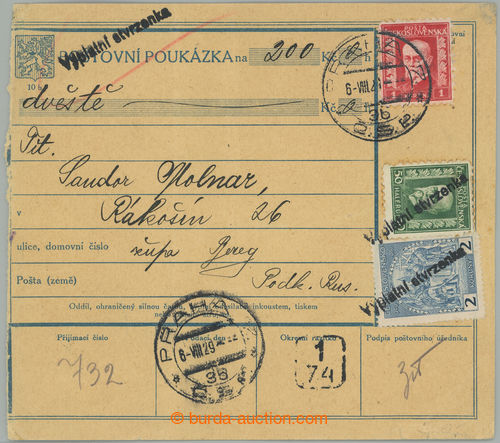 Výplatní stvrzenka
POŠTOVNÍ POUKÁZKA na 200 Kč h
10 h
POŠTA
ČESKOSLOVENSKÁ
1 1
PRAHA
6·VIII 29
36
Č.S.P.
dvěstě Kč
Tit.
Sandor Molnar,
50
HALÉŘŮ
Výplatní stvrzenka
Rákošín 26
ulice, domovní číslo župa Bereg
Výplatní stvrzenka
2 2
Pošta (země) Podk. Rus.
Oddíl, ohraničený silnou čarou, inkoustem, tiskem
PRAHA
6·VIII 29
36
Přijímací číslo Podací den Okresní Podpis poštovního úředníka
732
1
74
© burda-auction.com